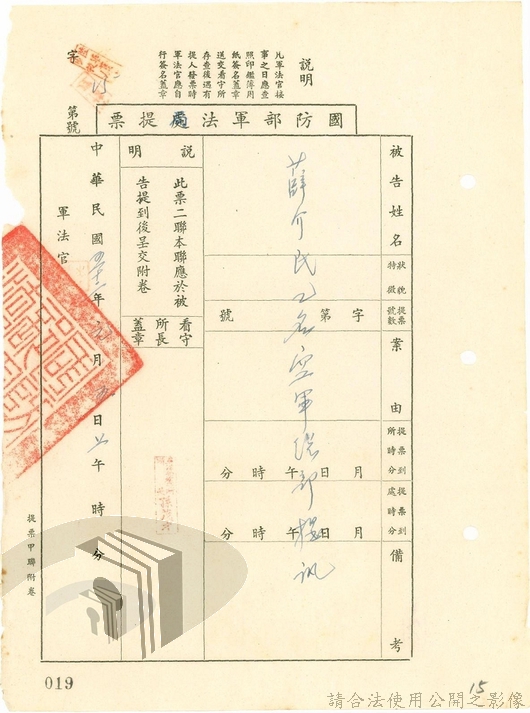 說明
凡軍法官接
事之日應查
照印鑑簿用
紙簽名蓋章
送交看守所
存查後遇有
提人發票時
軍法官應自
行簽名蓋章
字
第號
國防部軍法處提票
被告姓名
狀貌特徵
提票號數
字第號
案由
提票到所時分
月日午時分
提票到處時分
月日午時分
備考
薛介民乙名空軍總部提訊
說明
此票二聯本聯應於被
告提到後呈交附卷
看守所長蓋章
中華民國年月日午時分
軍法官
提票甲聯附卷
019
15
請合法使用公開之影像